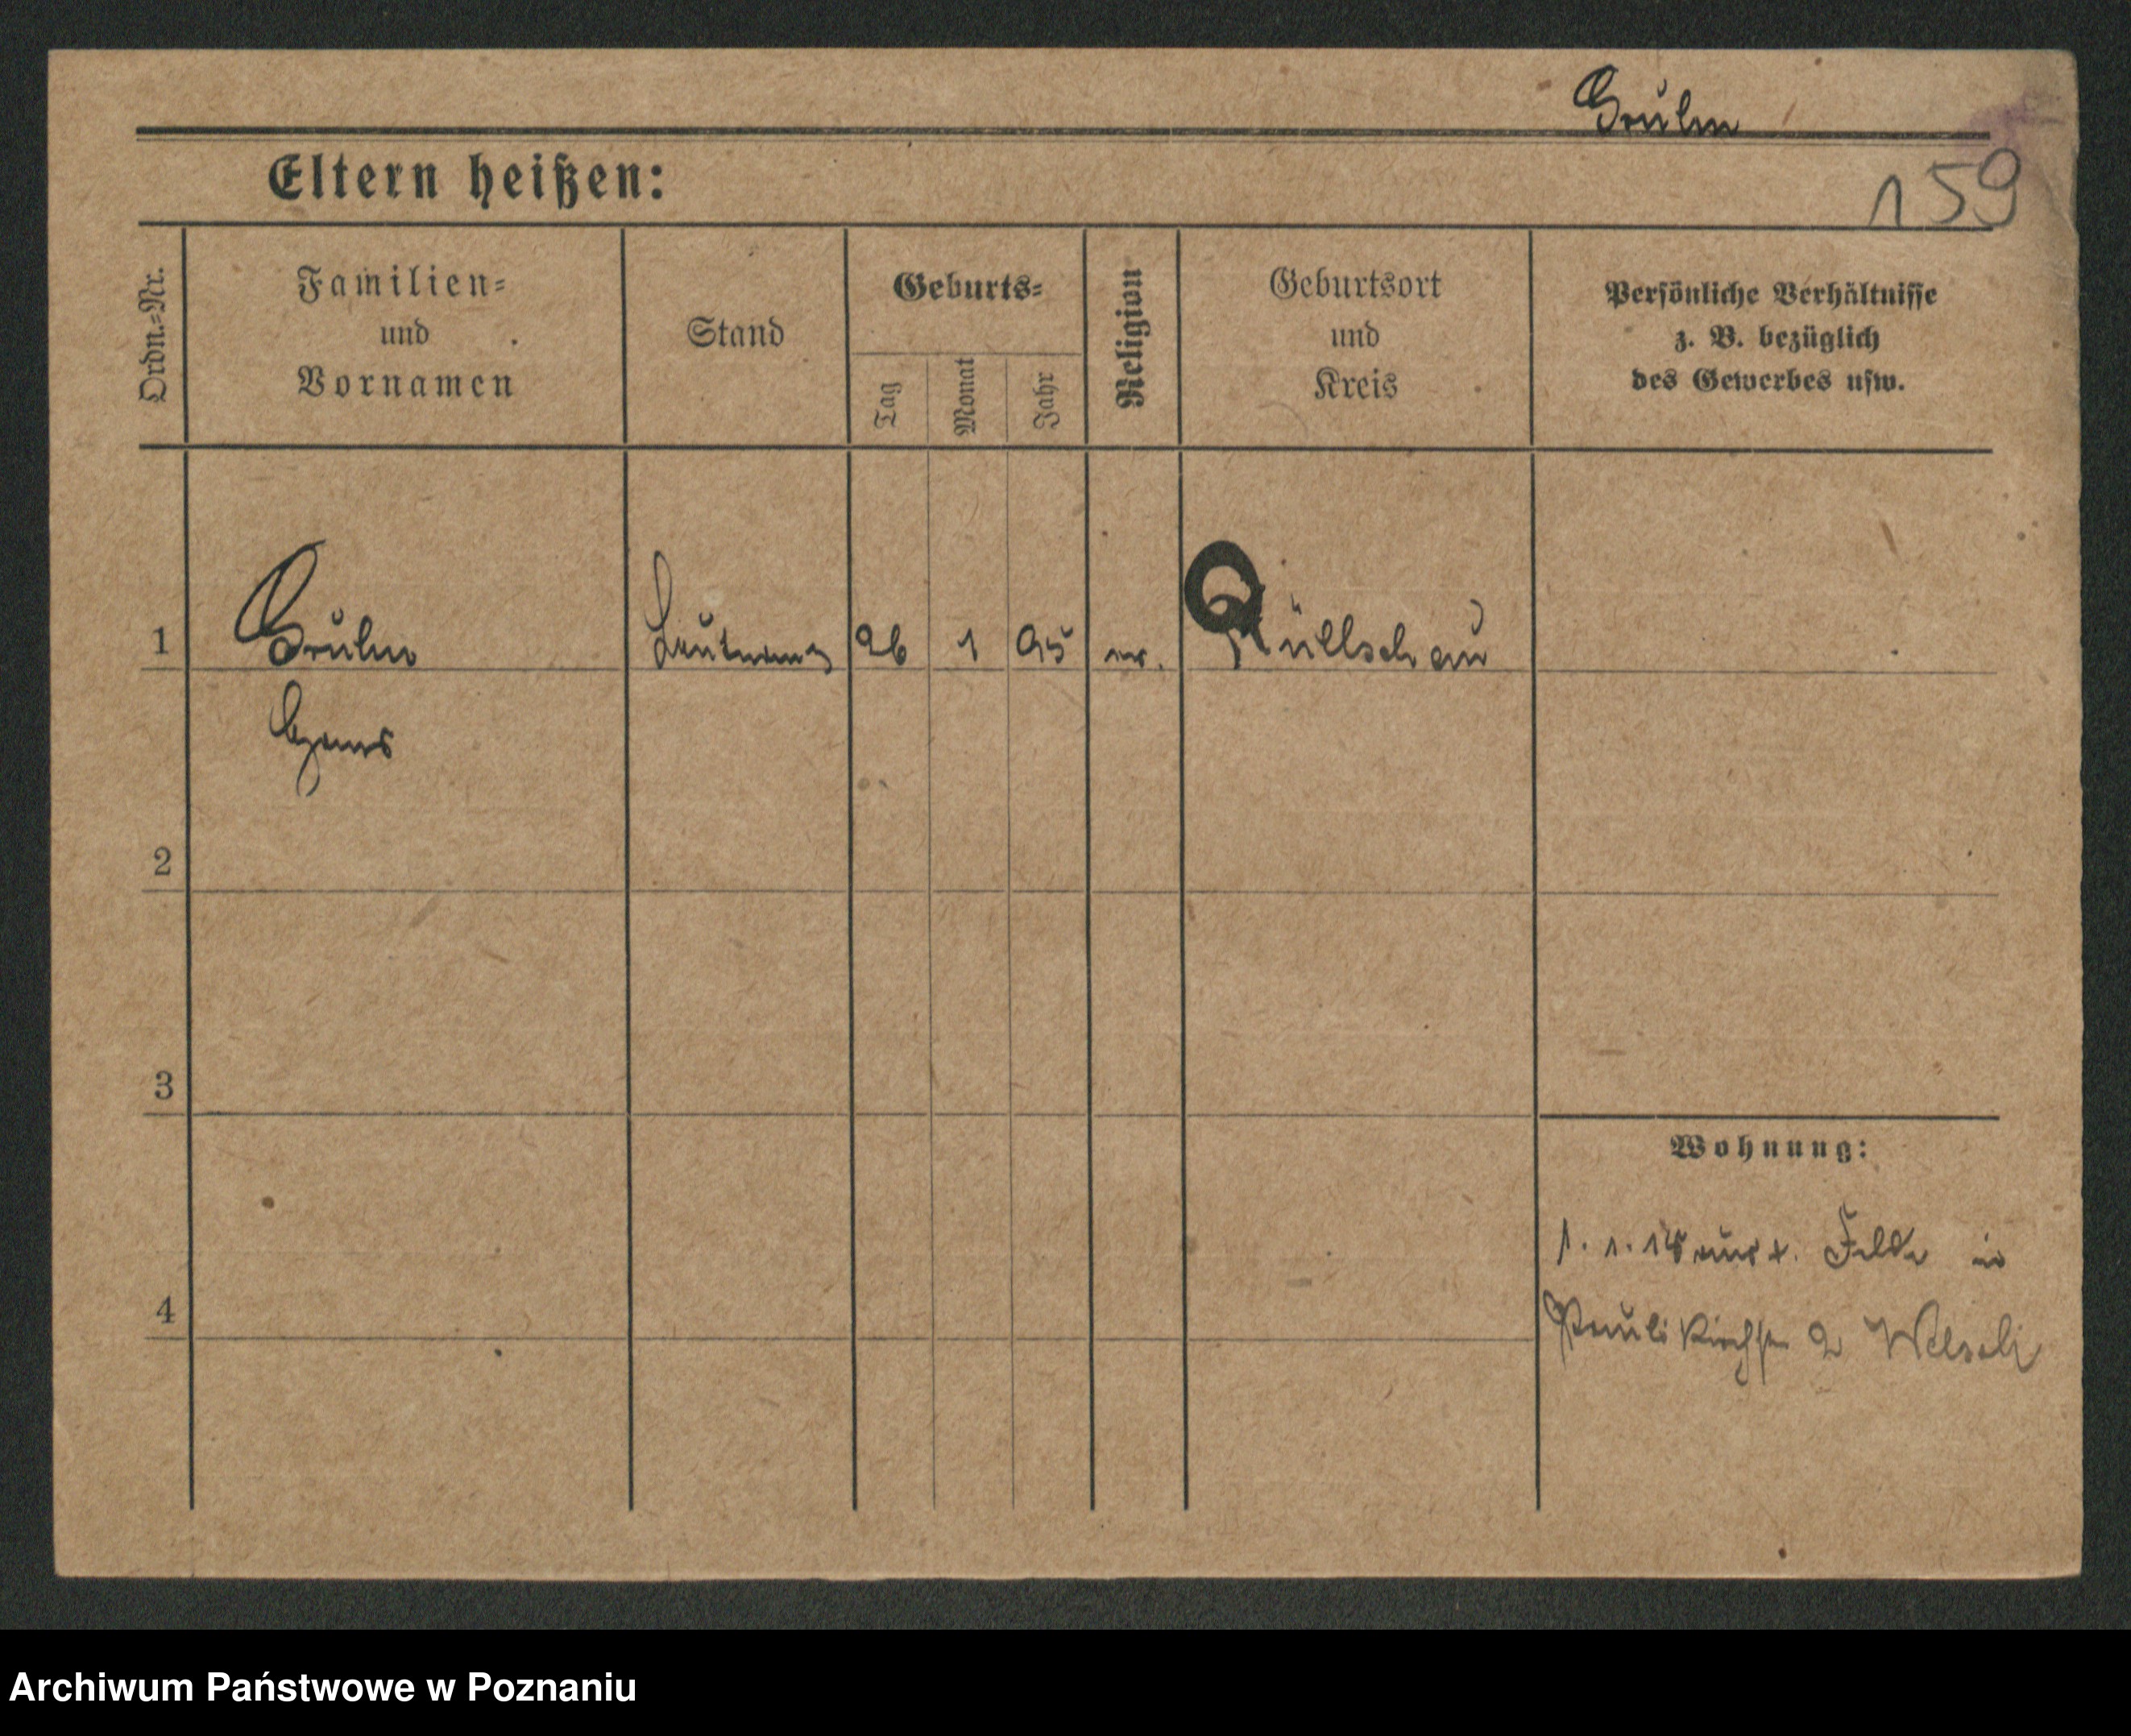 Gruhn
Eltern heißen:
159
Ordn.-Nr.
Familien-
und
Vornamen
Stand
Geburts-
Tag
Monat
Jahr
Religion
Geburtsort
und
Kreis
Persönliche Verhältnisse
z. B. bezüglich
des Gewerbes usw.
1
Leutnant
26
1
95
Hans
2
3
Wohnung:
1. 1. Felde in
4
Paulikirchstr 2
Archiwum Państwowe w Poznaniu